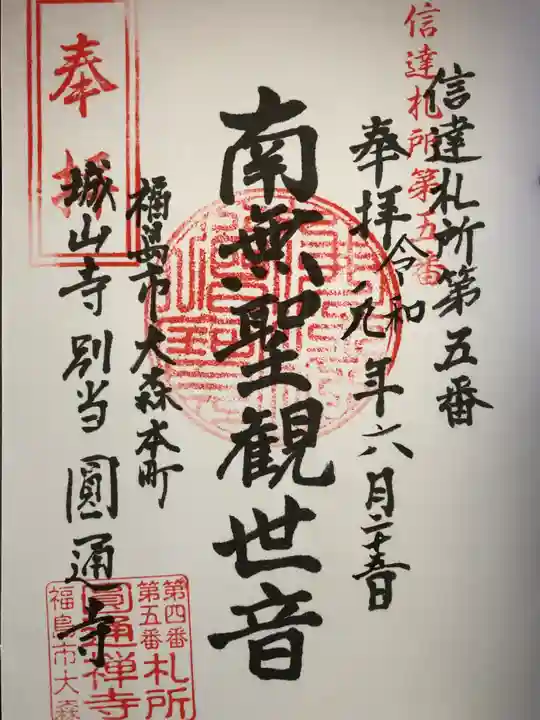 信達札所第五番
信達札所第五番
奉拝令和元年六月二十五日
南無聖観世音
福島市大森本町
奉拝
城山寺別当圓通寺
第四番
第五番
札所
圓通禅寺
福島市大森